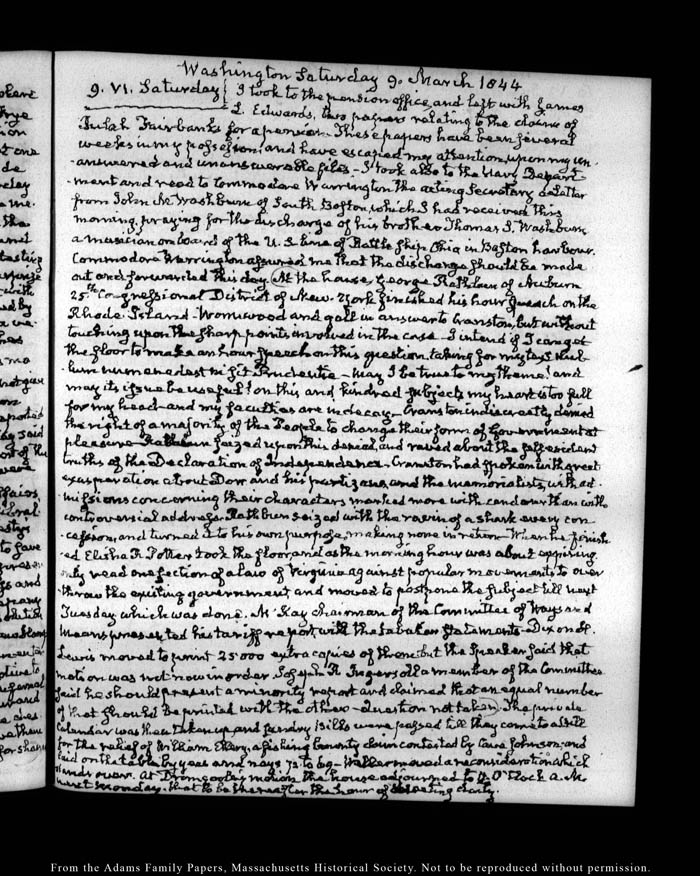 Washington Saturday 9. March 1844
9. VI. Saturday. I took to the pension office, and left with James
L. Edwards, two papers relating to the claim of
Fairbanks for a pension. These papers have been several
weeks in my possession, and have escaped my attention, upon my un-
answered and unanswerable files. I took also to the Navy Depart-
ment and read to Commodore Warrington the acting Secretary a Letter
from John Washburn of South Boston, which I had received this
morning, praying for the discharge of his brother Thomas Washburn
a musician on board of the U.S. line of Battle ship Ohio in Boston harbour.
Commodore Warrington assured me that the discharge should be made
out and forwarded this day. At the house, George Rathbun of Auburn
25th Congressional District of New-York finished his hour speech on the
Rhode-Island Wormwood and gall in answer to Cranston, but without
touching upon the sharp points involved in the case. I intend if I can get
the floor to make an hour speech on this question, taking for my text Nul-
lum numen abest si sit Prudentia - May I be true to my theme! and
may its issue be useful! on this and kindred subjects my heart is too full
for my head and my faculties are in decay. Cranston indiscreetly denied
the right of a majority of the People to change their form of Government at
pleasure. Rathbun seized upon this denial, and raved about the self evident
truths of the Declaration of Independence. Cranston had spoken with great
exasperation about Dorr and his partizans, and the memorialists, with ad-
missions concerning their characters marked more with candour than with
controversial address. Rathbun seized with the raven of a shark every con-
cession, and turned it to his own purpose, making none in return. When he finish-
ed Elisha R. Potter took the floor, and as the morning hour was about expiring
only read one section of a law of Virginia against popular movements to over-
throw the existing government and moved to postpone the subject till next
Tuesday which was done. McKay chairman of the Committee of Ways and
Means presented his tariff report with the tabular statements - Dixon H.
Lewis moved to print 25000 extra copies of them but the Speaker said that
motion was not now in order. Joseph R. Ingersoll a member of the Committee
said he should present a minority report and claimed that an equal number
of that should be printed with the other - Question not taken. The private
Calendar was then taken up and sundry Bills were passed till they came to a bill
for the relief of William Ellery, a fishing bounty claim contested by Cave Johnson, and
laid on the table by yeas and nays 72 to 69 - Weller moved a reconsideration which
stands over. At Dromgoole's motion the house adjourned to O'Clock A.M.
next Monday. that to be thereafter the hour of meeting daily.
From the Adams Family Papers, Massachusetts Historical Society. Not to be reproduced without permission.